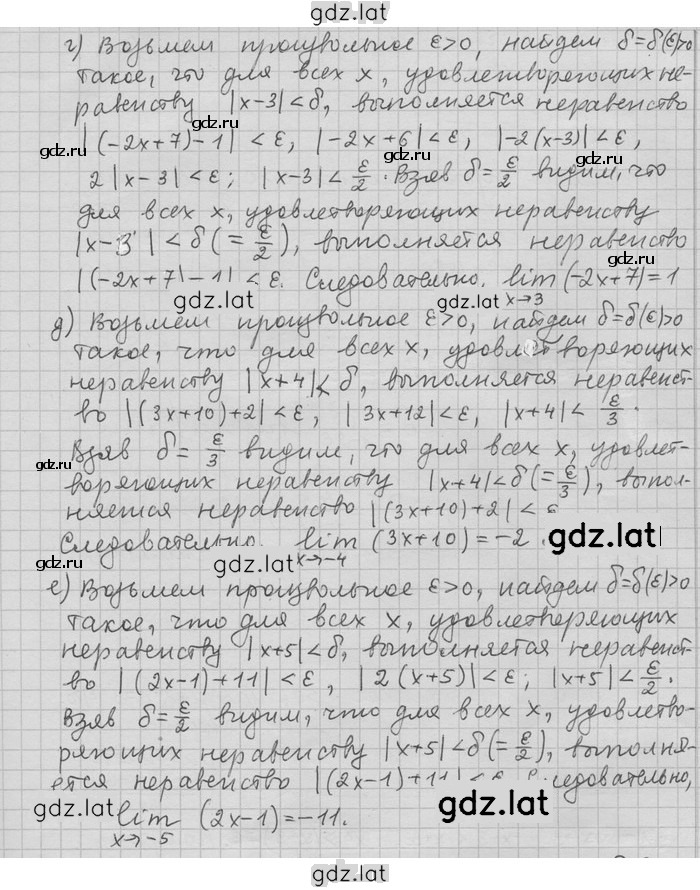 gdz.lat
г) Возьмем произвольное ε>0, найдем δ=δ(ε)>0
gdz.ru
такое, что для всех x, удовлетворяющих не-
gdz.ru
равенству |x-3|<δ, выполняется неравенство
|(-2x+7)-1|<ε, |-2x+6|<ε, |-2(x-3)|<ε,
gdz.ru
gdz.ru
2|x-3|<ε; |x-3|<ε/2. Взяв δ=ε/2 видим, что
gdz.lat
для всех x, удовлетворяющих неравенству
|x-3|<δ(=ε/2), выполняется неравенство
|(-2x+7)-1|<ε. Следовательно. lim (-2x+7)=1
gdz.lat
gdz.lat
x→3
д) Возьмем произвольное ε>0, найдем δ=δ(ε)>0
такое, что для всех x, удовлетворяющих
неравенству |x+4|<δ, выполняется неравенст-
во |(3x+10)+2|<ε, |3x+12|<ε, |x+4|<ε/3.
Взяв δ=ε/3 видим, что для всех x, удовлет-
gdz.ru
gdz.lat
gdz.ru
воряющих неравенству |x+4|<δ(=ε/3), выпол-
няется неравенство |(3x+10)+2|<
Следовательно. lim (3x+10)=-2.
gdz.lat
gdz.lat
x→-4
gdz.ru
е) Возьмем произвольное ε>0, найдем δ=δ(ε)>0
gdz.ru
такое, что для всех x, удовлетворяющих
неравенству |x+5|<δ, выполняется неравенст-
gdz.lat
gdz.lat
во |(2x-1)+11|<ε, |2(x+5)|<ε; |x+5|<ε/2.
Взяв δ=ε/2 видим, что для всех x, удовлетво-
gdz.ru
gdz.ru
ряющих неравенству |x+5|<δ(=ε/2), выполня-
ется неравенство |(2x-1)+11|<
gdz.lat
gdz.lat
lim (2x-1)=-11.
x→-5
gdz.lat